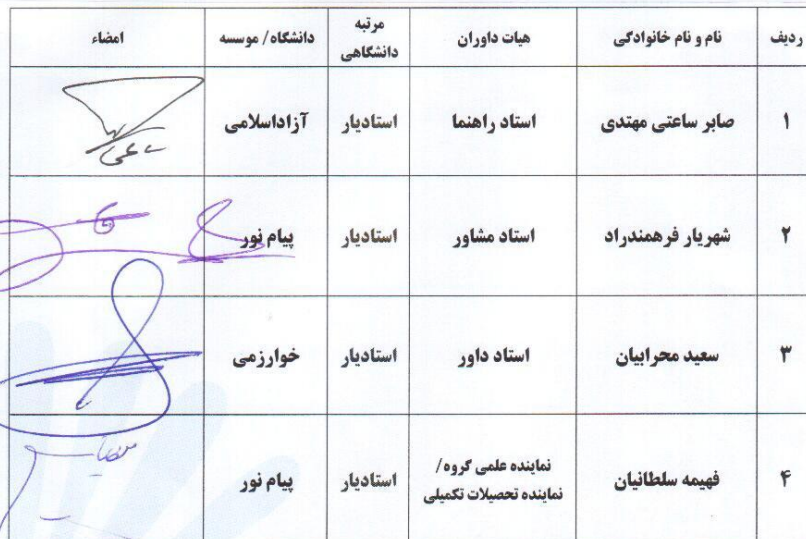 ردیف نام و نام خانوادگی هیات داوران مرتبه دانشگاهی دانشگاه/ موسسه امضاء
۱ صابر ساعتی مهتدی استاد راهنما استادیار آزاداسلامی
۲ شهریار فرهمندراد استاد مشاور استادیار پیام نور
۳ سعید محرابیان استاد داور استادیار خوارزمی
۴ فهیمه سلطانیان نماینده علمی گروه/ نماینده تحصیلات تکمیلی استادیار پیام نور